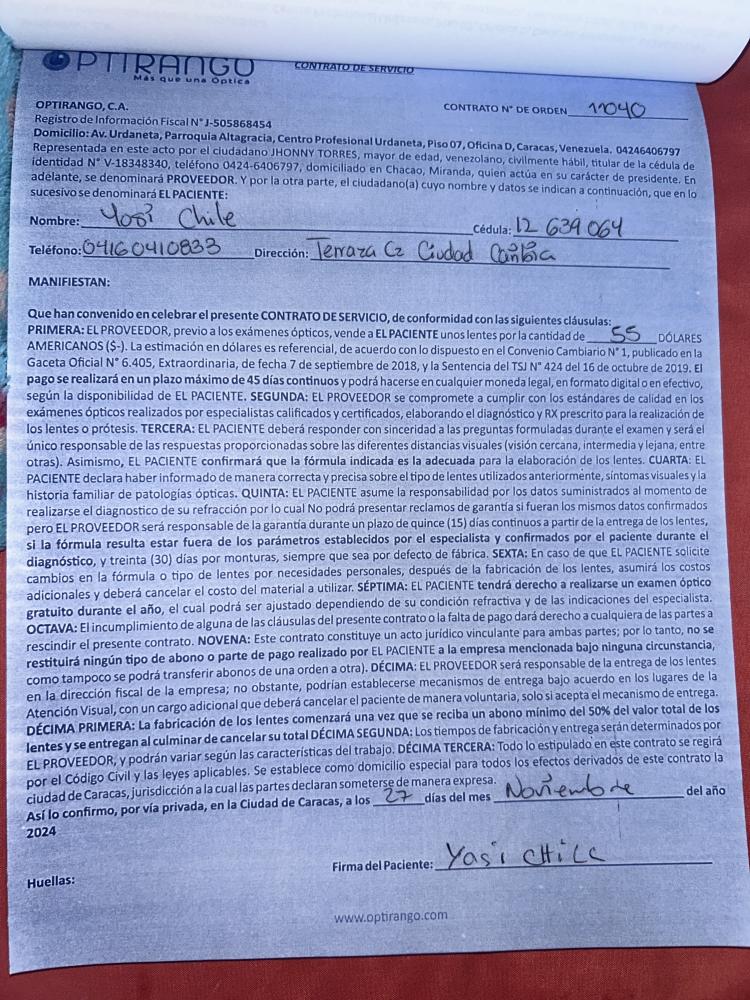 OPTIRANGO
Más que una Óptica
CONTRATO DE SERVICIO
OPTIRANGO, C.A.
CONTRATO N° DE ORDEN 11040
Registro de Información Fiscal N° J-505868454
Domicilio: Av. Urdaneta, Parroquia Altagracia, Centro Profesional Urdaneta, Piso 07, Oficina D, Caracas, Venezuela. 04246406797
Representada en este acto por el ciudadano JHONNY TORRES, mayor de edad, venezolano, civilmente hábil, titular de la cédula de
identidad N° V-18348340, teléfono 0424-6406797, domiciliado en Chacao, Miranda, quien actúa en su carácter de presidente. En
adelante, se denominará PROVEEDOR. Y por la otra parte, el ciudadano(a) cuyo nombre y datos se indican a continuación, que en lo
sucesivo se denominará EL PACIENTE:
Nombre: Yosi Chile Cédula: 12 639 064
Teléfono: 04160410833 Dirección: Terraza C2 Ciudad
MANIFIESTAN:
Que han convenido en celebrar el presente CONTRATO DE SERVICIO, de conformidad con las siguientes cláusulas:
PRIMERA: EL PROVEEDOR, previo a los exámenes ópticos, vende a EL PACIENTE unos lentes por la cantidad de 55 DÓLARES
AMERICANOS ($-). La estimación en dólares es referencial, de acuerdo con lo dispuesto en el Convenio Cambiario N° 1, publicado en la
Gaceta Oficial N° 6.405, Extraordinaria, de fecha 7 de septiembre de 2018, y la Sentencia del TSJ N° 424 del 16 de octubre de 2019. El
pago se realizará en un plazo máximo de 45 días continuos y podrá hacerse en cualquier moneda legal, en formato digital o en efectivo,
según la disponibilidad de EL PACIENTE. SEGUNDA: EL PROVEEDOR se compromete a cumplir con los estándares de calidad en los
exámenes ópticos realizados por especialistas calificados y certificados, elaborando el diagnóstico y RX prescrito para la realización de
los lentes o prótesis. TERCERA: EL PACIENTE deberá responder con sinceridad a las preguntas formuladas durante el examen y será el
único responsable de las respuestas proporcionadas sobre las diferentes distancias visuales (visión cercana, intermedia y lejana, entre
otras). Asimismo, EL PACIENTE confirmará que la fórmula indicada es la adecuada para la elaboración de los lentes. CUARTA: EL
PACIENTE declara haber informado de manera correcta y precisa sobre el tipo de lentes utilizados anteriormente, síntomas visuales y la
historia familiar de patologías ópticas. QUINTA: EL PACIENTE asume la responsabilidad por los datos suministrados al momento de
realizarse el diagnostico de su refracción por lo cual No podrá presentar reclamos de garantía si fueran los mismos datos confirmados
pero EL PROVEEDOR será responsable de la garantía durante un plazo de quince (15) días continuos a partir de la entrega de los lentes,
si la fórmula resulta estar fuera de los parámetros establecidos por el especialista y confirmados por el paciente durante el
diagnóstico, y treinta (30) días por monturas, siempre que sea por defecto de fábrica. SEXTA: En caso de que EL PACIENTE solicite
cambios en la fórmula o tipo de lentes por necesidades personales, después de la fabricación de los lentes, asumirá los costos
adicionales y deberá cancelar el costo del material a utilizar. SÉPTIMA: EL PACIENTE tendrá derecho a realizarse un examen óptico
gratuito durante el año, el cual podrá ser ajustado dependiendo de su condición refractiva y de las indicaciones del especialista.
OCTAVA: El incumplimiento de alguna de las cláusulas del presente contrato o la falta de pago dará derecho a cualquiera de las partes a
rescindir el presente contrato. NOVENA: Este contrato constituye un acto jurídico vinculante para ambas partes; por lo tanto, no se
restituirá ningún tipo de abono o parte de pago realizado por EL PACIENTE a la empresa mencionada bajo ninguna circunstancia,
como tampoco se podrá transferir abonos de una orden a otra). DÉCIMA: EL PROVEEDOR será responsable de la entrega de los lentes
en la dirección fiscal de la empresa; no obstante, podrían establecerse mecanismos de entrega bajo acuerdo en los lugares de la
Atención Visual, con un cargo adicional que deberá cancelar el paciente de manera voluntaria, solo si acepta el mecanismo de entrega.
DÉCIMA PRIMERA: La fabricación de los lentes comenzará una vez que se reciba un abono mínimo del 50% del valor total de los
lentes y se entregan al culminar de cancelar su total DÉCIMA SEGUNDA: Los tiempos de fabricación y entrega serán determinados por
EL PROVEEDOR, y podrán variar según las características del trabajo. DÉCIMA TERCERA: Todo lo estipulado en este contrato se regirá
por el Código Civil y las leyes aplicables. Se establece como domicilio especial para todos los efectos derivados de este contrato la
ciudad de Caracas, jurisdicción a la cual las partes declaran someterse de manera expresa.
Así lo confirmo, por vía privada, en la Ciudad de Caracas, a los 27 días del mes Noviembre del año
2024
Firma del Paciente: Yasi CHiLe
Huellas:
www.optirango.com